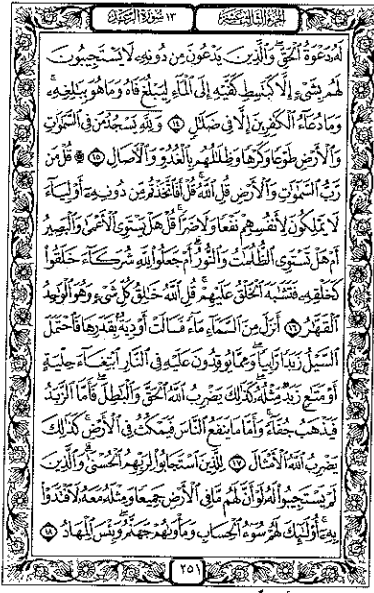 الجزء الثالث عشر
١٣ سورة الرعد
لَهُۥ دَعْوَةُ ٱلْحَقِّ ۖ وَٱلَّذِينَ يَدْعُونَ مِن دُونِهِۦ لَا يَسْتَجِيبُونَ
لَهُم بِشَىْءٍ إِلَّا كَبَٰسِطِ كَفَّيْهِ إِلَى ٱلْمَآءِ لِيَبْلُغَ فَاهُ وَمَا هُوَ بِبَٰلِغِهِۦ ۚ
وَمَا دُعَآءُ ٱلْكَٰفِرِينَ إِلَّا فِى ضَلَٰلٍ ١٤ وَلِلَّهِ يَسْجُدُ مَن فِى ٱلسَّمَٰوَٰتِ
وَٱلْأَرْضِ طَوْعًا وَكَرْهًا وَظِلَٰلُهُم بِٱلْغُدُوِّ وَٱلْءَاصَالِ ۩ ١٥ ۞ قُلْ مَن
رَّبُّ ٱلسَّمَٰوَٰتِ وَٱلْأَرْضِ قُلِ ٱللَّهُ ۚ قُلْ أَفَٱتَّخَذْتُم مِّن دُونِهِۦٓ أَوْلِيَآءَ
لَا يَمْلِكُونَ لِأَنفُسِهِمْ نَفْعًا وَلَا ضَرًّا ۚ قُلْ هَلْ يَسْتَوِى ٱلْأَعْمَىٰ وَٱلْبَصِيرُ
أَمْ هَلْ تَسْتَوِى ٱلظُّلُمَٰتُ وَٱلنُّورُ ۗ أَمْ جَعَلُوا۟ لِلَّهِ شُرَكَآءَ خَلَقُوا۟
كَخَلْقِهِۦ فَتَشَٰبَهَ ٱلْخَلْقُ عَلَيْهِمْ ۚ قُلِ ٱللَّهُ خَٰلِقُ كُلِّ شَىْءٍ وَهُوَ ٱلْوَٰحِدُ
ٱلْقَهَّٰرُ ١٦ أَنزَلَ مِنَ ٱلسَّمَآءِ مَآءً فَسَالَتْ أَوْدِيَةٌۢ بِقَدَرِهَا فَٱحْتَمَلَ
ٱلسَّيْلُ زَبَدًا رَّابِيًا ۚ وَمِمَّا يُوقِدُونَ عَلَيْهِ فِى ٱلنَّارِ ٱبْتِغَآءَ حِلْيَةٍ
أَوْ مَتَٰعٍ زَبَدٌ مِّثْلُهُۥ ۚ كَذَٰلِكَ يَضْرِبُ ٱللَّهُ ٱلْحَقَّ وَٱلْبَٰطِلَ ۚ فَأَمَّا ٱلزَّبَدُ
فَيَذْهَبُ جُفَآءً ۖ وَأَمَّا مَا يَنفَعُ ٱلنَّاسَ فَيَمْكُثُ فِى ٱلْأَرْضِ ۚ كَذَٰلِكَ
يَضْرِبُ ٱللَّهُ ٱلْأَمْثَالَ ١٧ لِلَّذِينَ ٱسْتَجَابُوا۟ لِرَبِّهِمُ ٱلْحُسْنَىٰ ۚ وَٱلَّذِينَ
لَمْ يَسْتَجِيبُوا۟ لَهُۥ لَوْ أَنَّ لَهُم مَّا فِى ٱلْأَرْضِ جَمِيعًا وَمِثْلَهُۥ مَعَهُۥ لَٱفْتَدَوْا۟
بِهِۦٓ ۚ أُو۟لَٰٓئِكَ لَهُمْ سُوٓءُ ٱلْحِسَابِ وَمَأْوَىٰهُمْ جَهَنَّمُ ۖ وَبِئْسَ ٱلْمِهَادُ ١٨
٢٥١